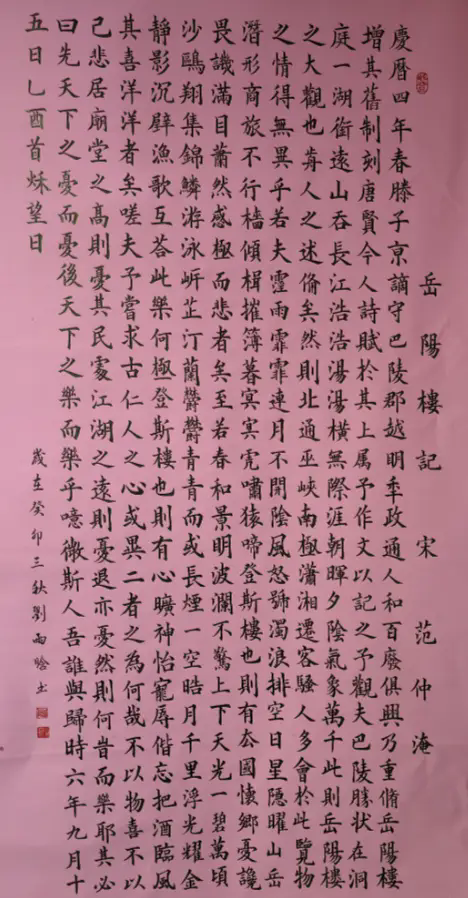 岳陽樓記 宋 范仲淹
慶曆四年春滕子京謫守巴陵郡越明秊政通人和百廢俱興乃重脩岳陽樓
增其舊制刻唐賢今人詩賦於其上属予作文以記之予觀夫巴陵勝状在洞
庭一湖銜遠山吞長江浩浩湯湯橫無際涯朝暉夕陰氣象萬千此則岳陽樓
之大觀也歬人之述俻矣然則北通巫峽南極瀟湘遷客騷人多會於此覽物
之情得無異乎若夫霪雨霏霏連月不開陰風怒號濁浪排空日星隱曜山岳
潛形商旅不行檣傾楫摧薄暮冥冥虎嘯猿啼登斯樓也則有去國懷鄉憂讒
畏譏滿目蕭然感極而悲者矣至若春和景明波瀾不驚上下天光一碧萬頃
沙鷗翔集錦鱗游泳岸芷汀蘭鬱鬱青青而或長煙一空皓月千里浮光耀金
靜影沉璧漁歌互荅此樂何極登斯樓也則有心曠神怡寵辱偕忘把酒臨風
其喜洋洋者矣嗟夫予嘗求古仁人之心或異二者之為何哉不以物喜不以
己悲居廟堂之高則憂其民處江湖之遠則憂退亦憂然則何旹而樂耶其必
曰先天下之憂而憂後天下之樂而樂乎噫微斯人吾誰與歸時六年九月十
五日乙酉首秌望日
歲在癸卯三秋劉雨書